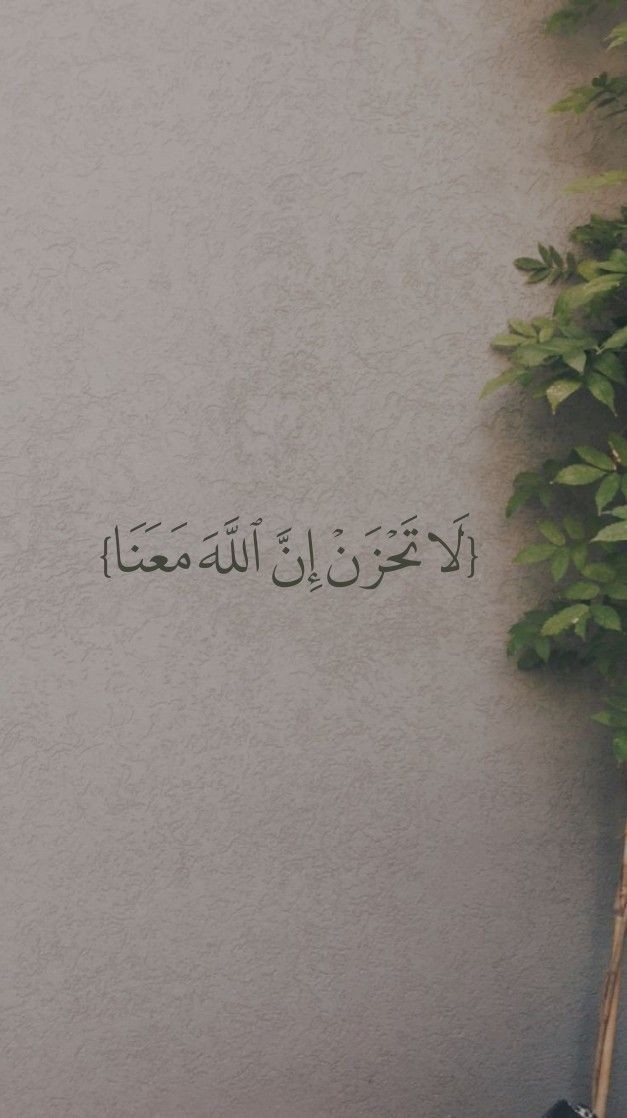 {لَا تَحْزَنْ إِنَّ ٱللَّهَ مَعَنَا}